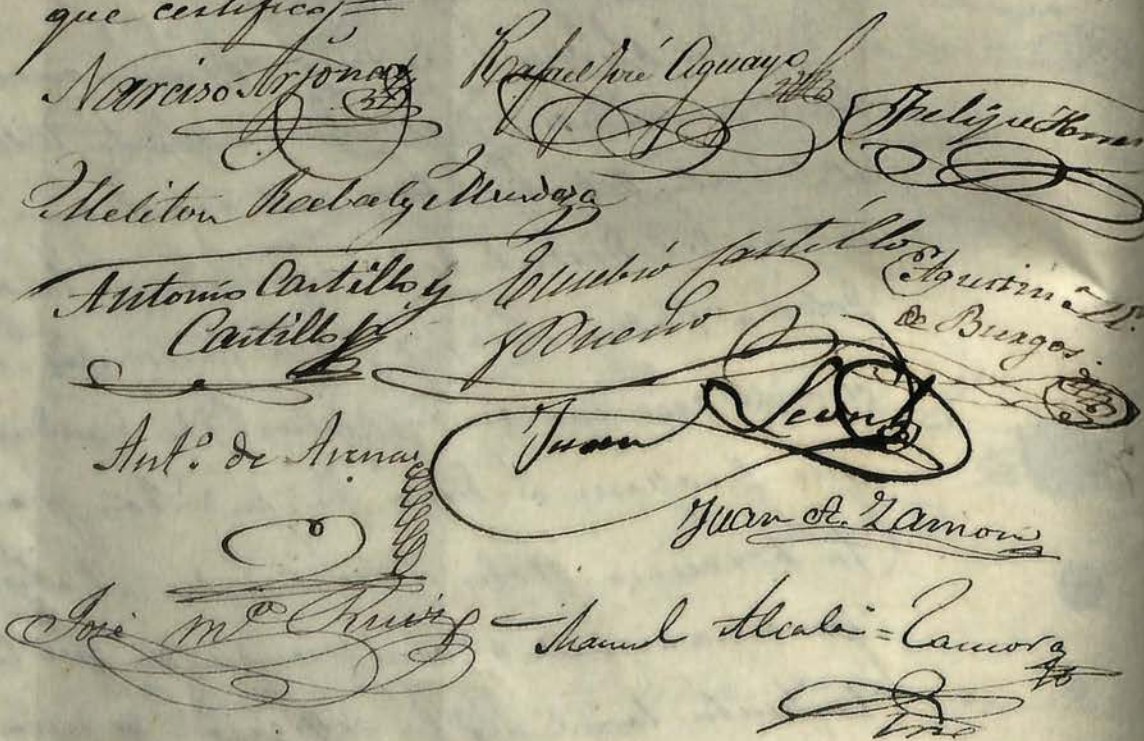 que certifico=
Narciso Arjona Rafael José Aguayo
Felipe
Meliton Mendoza
Antonio Castillo y Eusebio Castillo
Castillo y Bueno
Agustin
de Burgos.
Ant.º de Arenas
Juan
Juan A. Zamora
José Mª Ruiz
Manuel Alcalá=Zamora